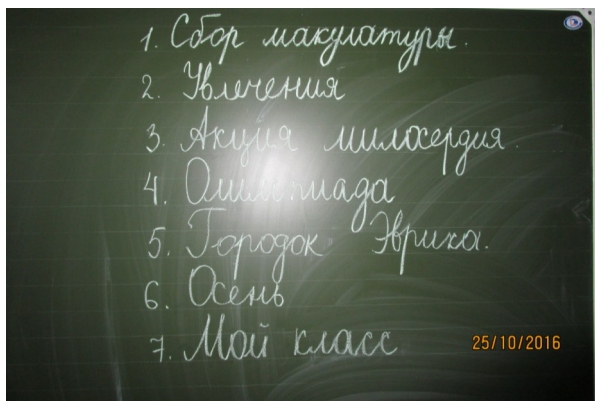 1. Сбор макулатуры.
2. Увлечения
3. Акция милосердия.
4. Олимпиада
5. Городок Эврика.
6. Осень
7. Мой класс
25/10/2016